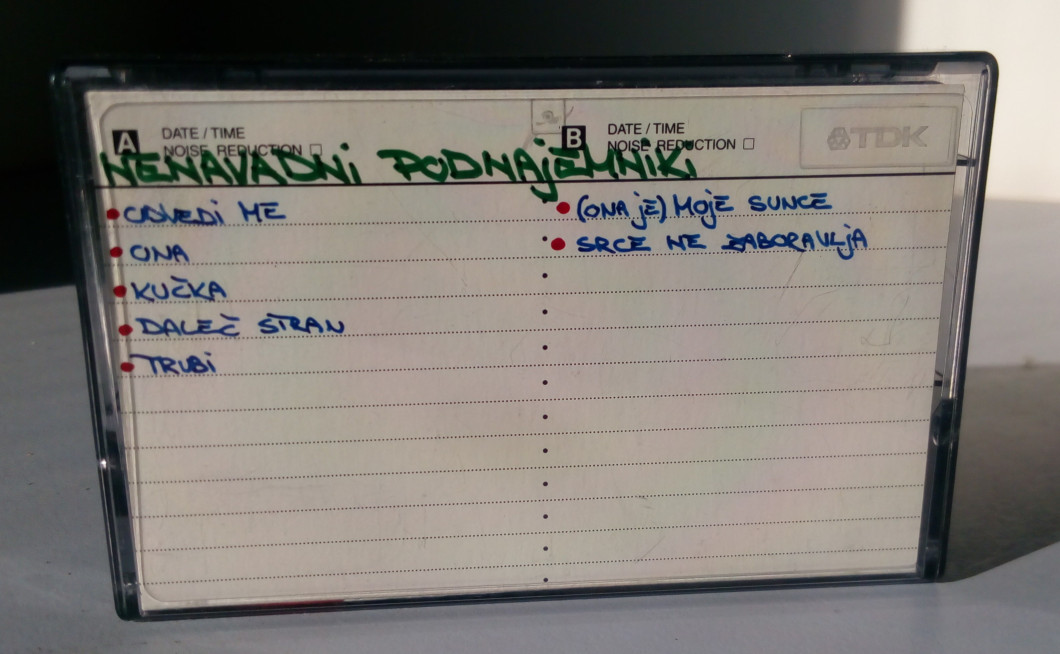 A DATE / TIME
NOISE REDUCTION
B DATE / TIME
NOISE REDUCTION
TDK
NENAVADNi PODNAjEMNiKi
ODVEDi ME
ONA
KUČKA
DALEČ STRAN
TRUBi
(ONA jE) MOjE SUNCE
SRCE NE ZABORAVLjA